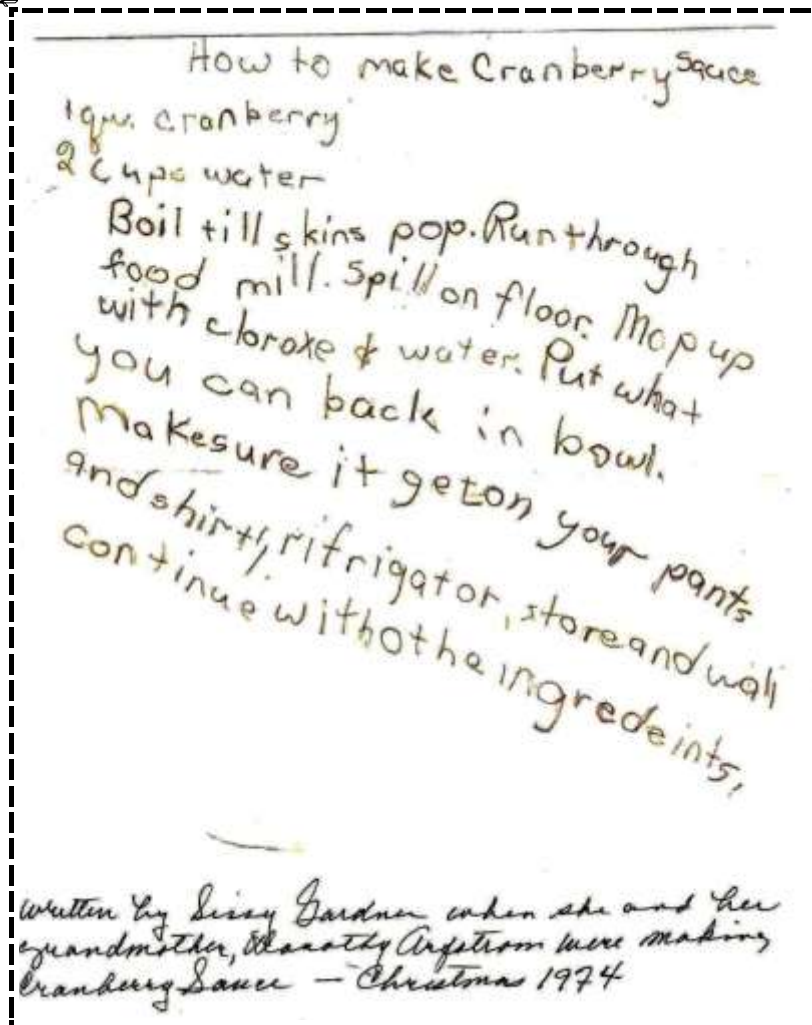 How to make Cranberry Sauce
1 qu. cranberry
2 cups water
Boil till skins pop. Run through
food mill. Spill on floor. Mop up
with cloroxe & water. Put what
you can back in bowl.
Makesure it get on your pants
and shirt, rifrigator, store and wall
continue with othe ingredeints,
written by Sissy Gardner when she and her
grandmother, Dorothy Arfstrom were making
Cranberry Sauce - Christmas 1974